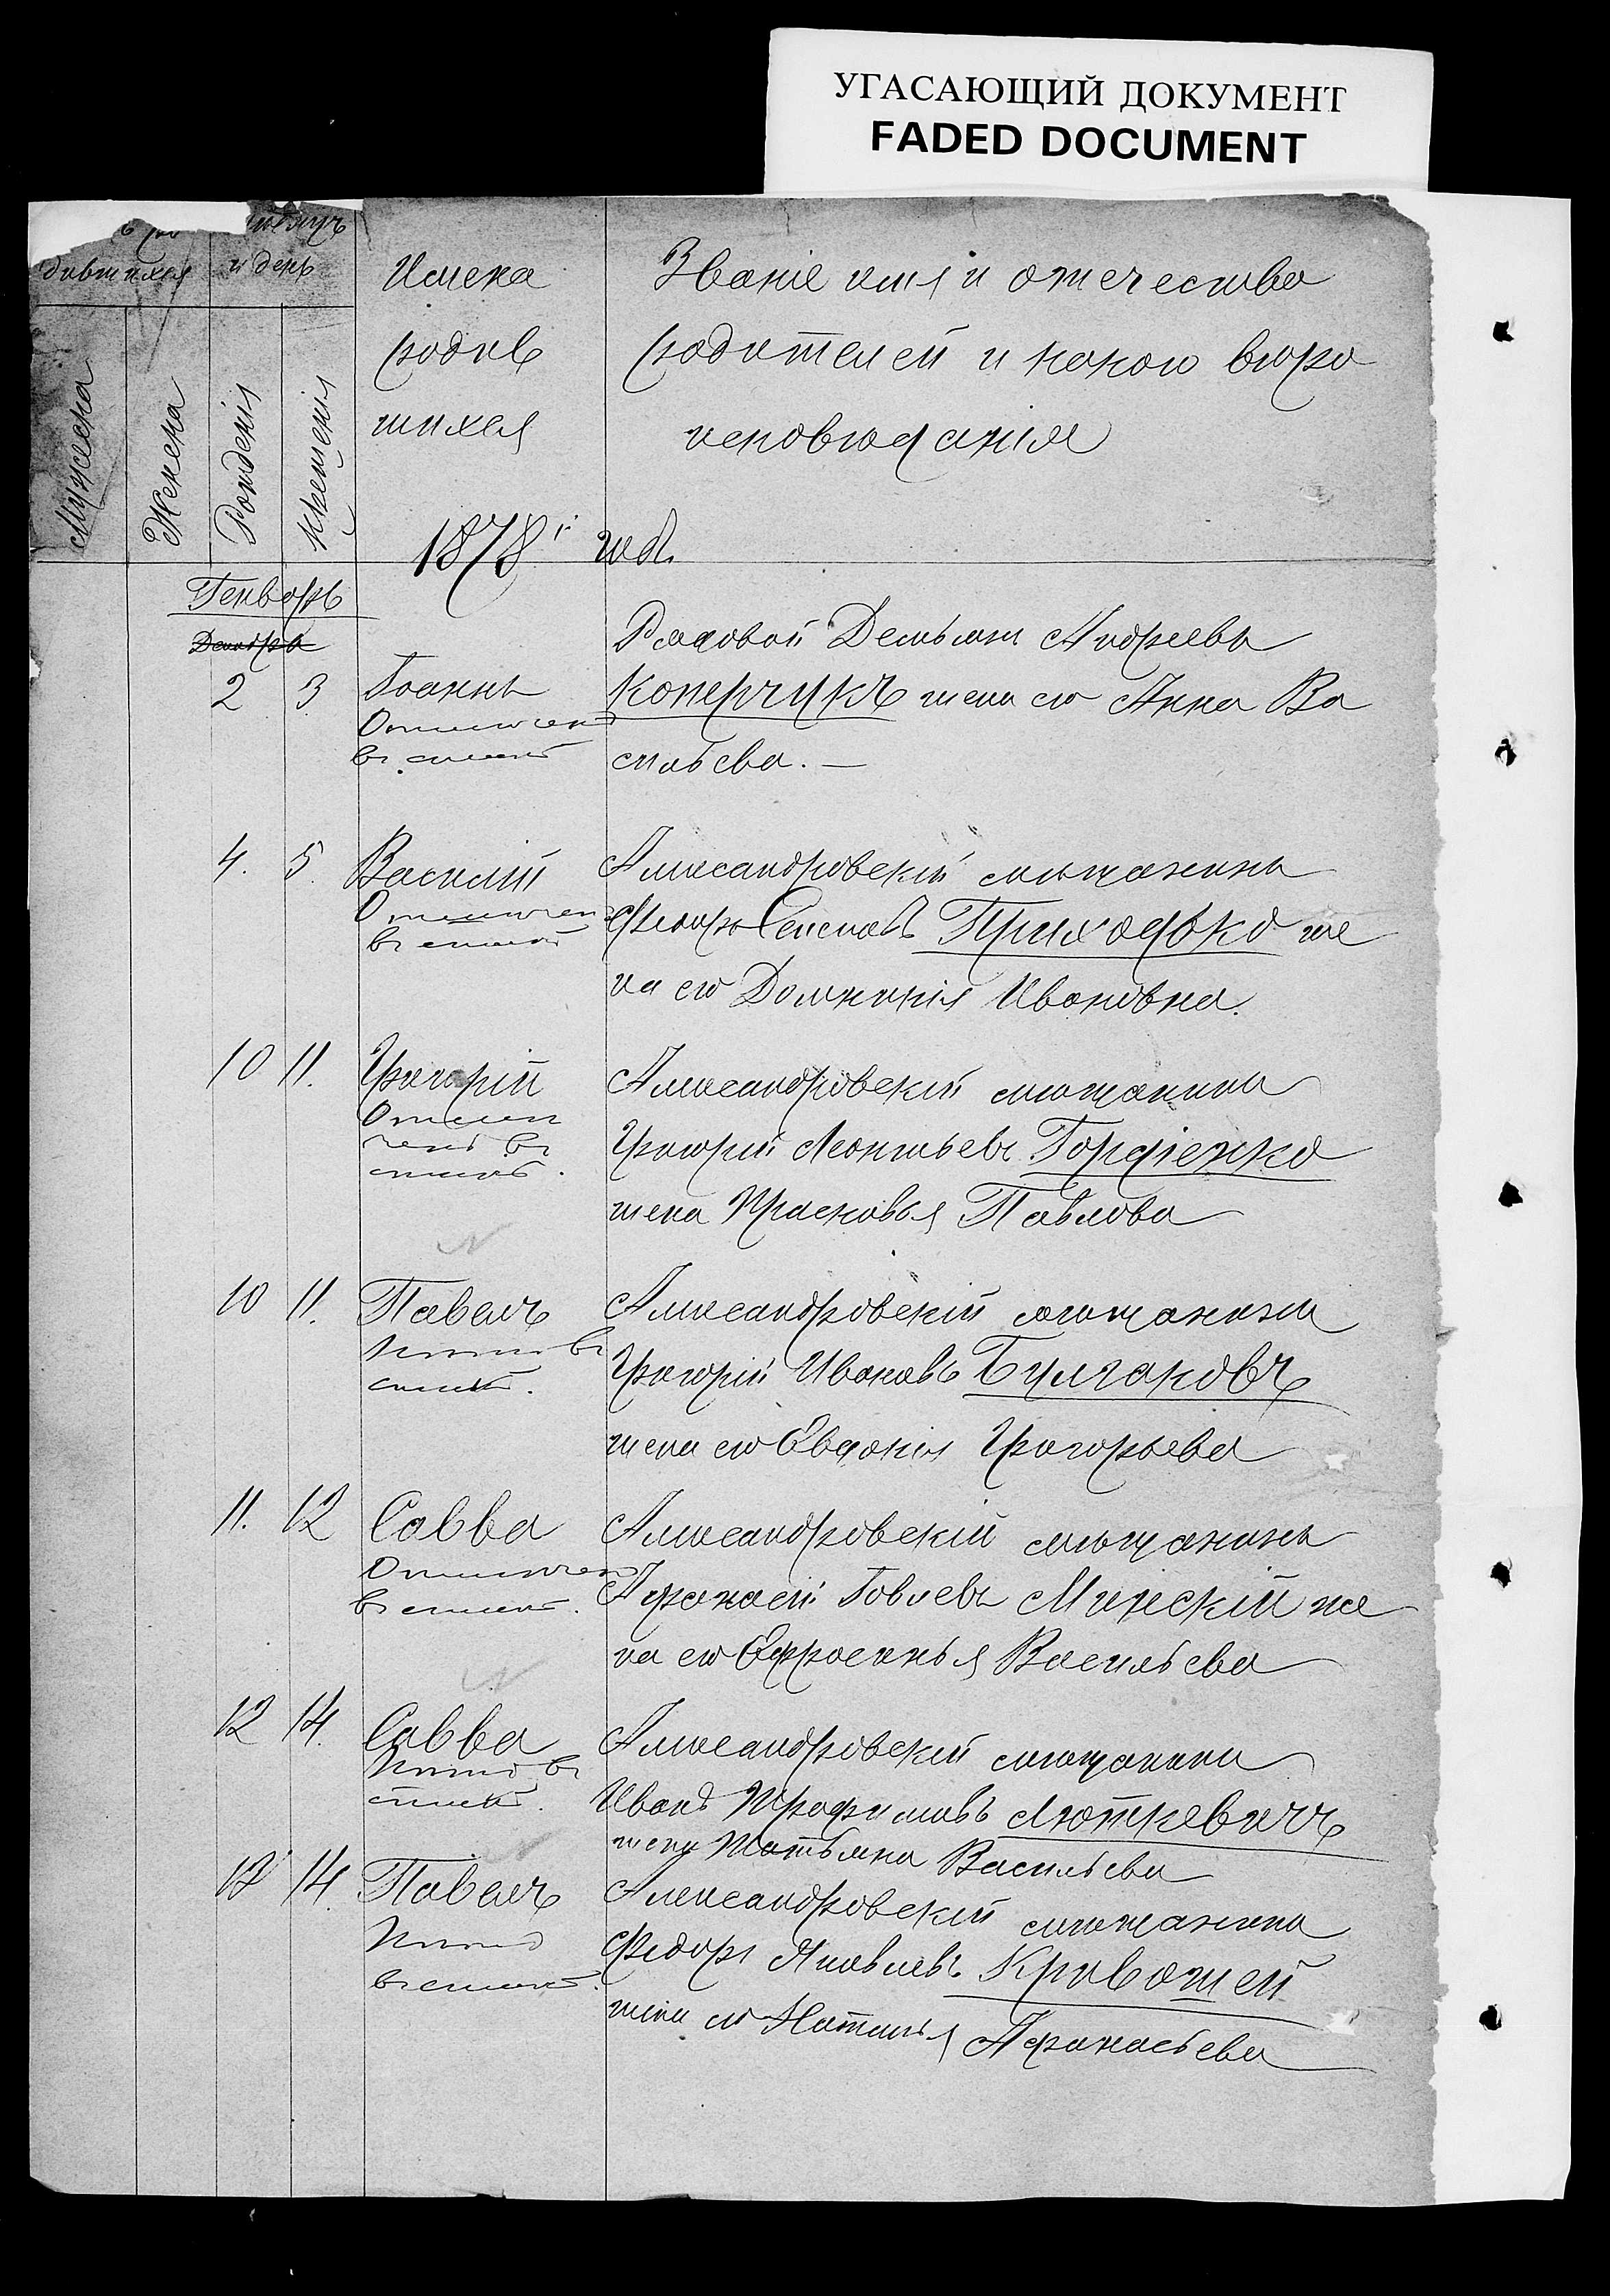 УГАСАЮЩИЙ ДОКУМЕНТ
FADED DOCUMENT
дившихся
и день
Мужеска
Женска
Рожденія
Крещенія
Имена
родив
шихся
Званіе имя и отечество
родителей и какого вѣро
исповѣданія
1878 г. годъ
Генварь
Декабрь
2 3 Іоаннъ
Отмечен
въ списк
Рядовой Демьянъ Андреевъ
Коперчукъ жена его Анна Ва
сильева. —
4. 5. Василій
Отмечен
въ списк
Александровскій мѣщанинъ
Федоръ Семеновъ Приходько же
на его Домникія Ивановна.
10 11. Григорій
Отмеч
ченъ въ
списк.
Александровскій мѣщанинъ
Григорій Леонтьевъ Гордіенко
жена Прасковья Павлова
10 11. Павелъ
въ
списк.
Александровскій мѣщанинъ
Григорій Ивановъ Булгаковъ
жена его Евдокія Григорьева
11. 12 Савва
Отмечен
въ списк.
Александровскій мѣщанинъ
Афанасій Іовлевъ Минскій же
на его Ефросинья Васильева
12 14. Савва
въ
списк.
Александровскій мѣщанинъ
Иванъ Трофимовъ Люткевичъ
жена Татьяна Васильева
12 14. Павелъ
въ списк.
Александровскій мѣщанинъ
Федоръ Яковлевъ Кривошей
жена его Наталья Афанасьева